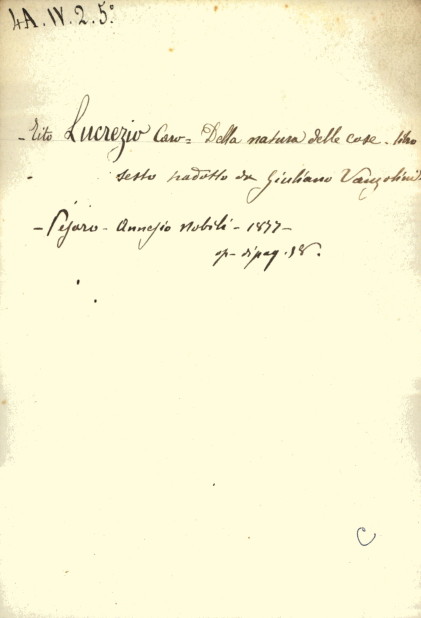 4A.IV.2.5°
- Tito Lucrezio Caro = Della natura delle cose - libro
- sesto tradotto da Giuliano Vanzolini.
- Pesaro - Annesio Nobili - 1877 -
op - di pag. 98.
C